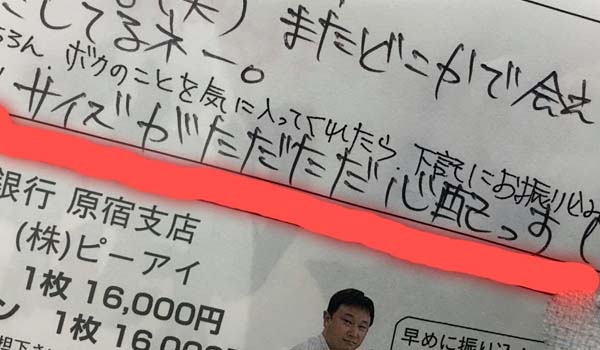 (笑) またどこかで会え
にしてるネー。
ろん、ボクのことを気に入ってくれたら、下記にお振り込み
サイズがただただ心配っす(
銀行 原宿支店
(株)ピーアイ
1枚 16,000円
ン 1枚 16,000
担下さい
早めに振り込